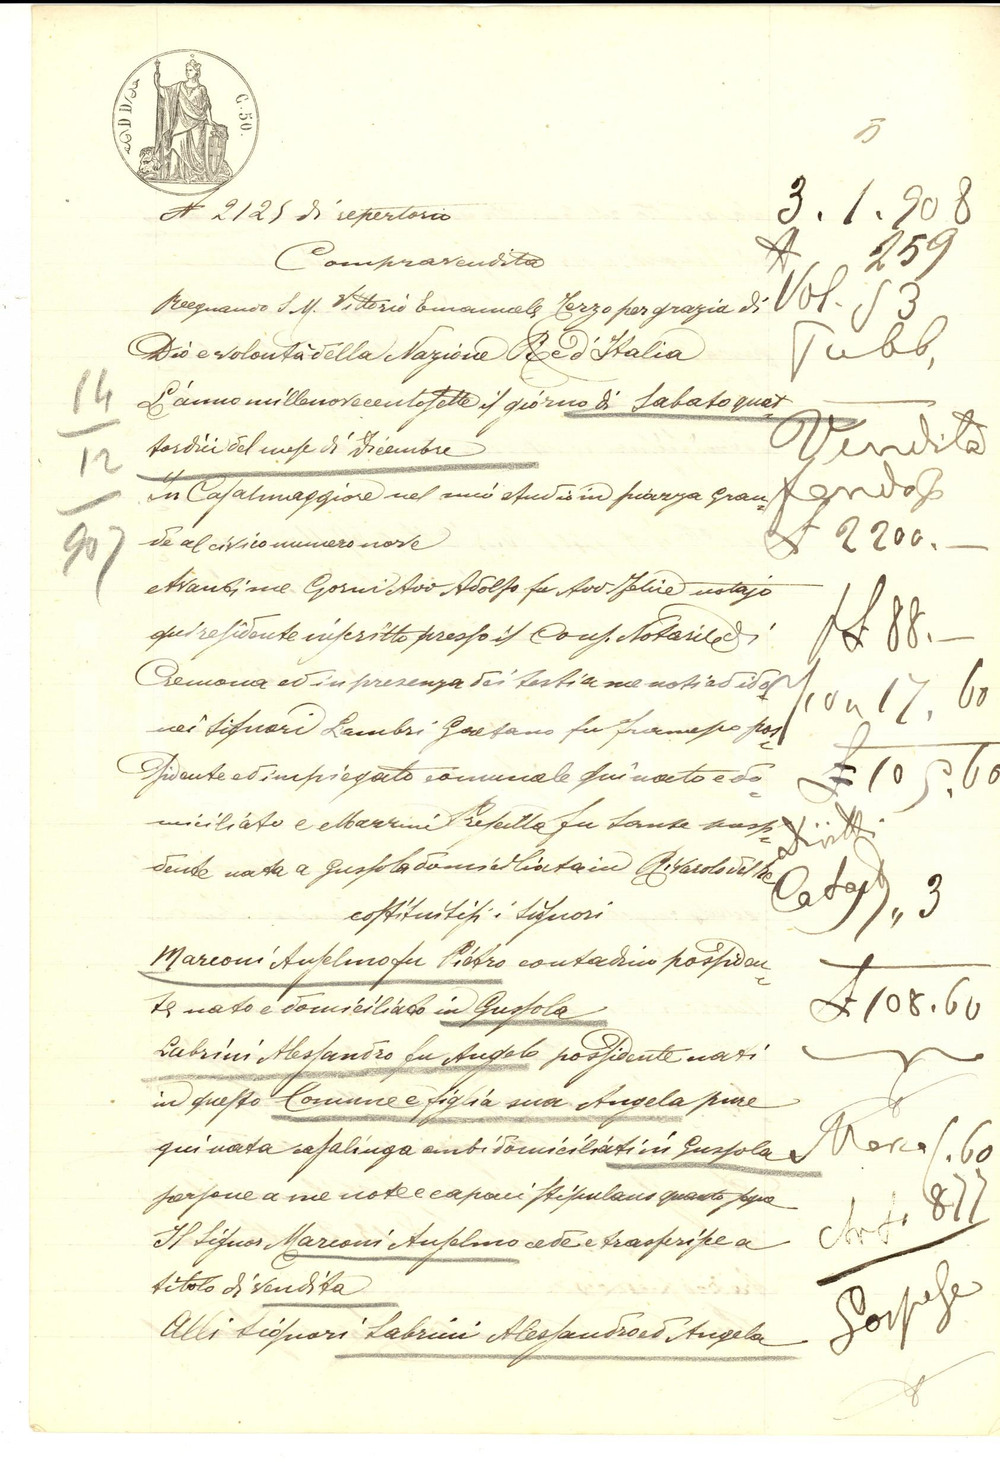 C. 50.
N 2125 di repertorio
Compravendita
Regnando S. M. Vittorio Emanuele Terzo per grazia di
Dio e volontà della Nazione Re d'Italia
L'anno millenovecentosette il giorno di Sabato quat-
tordici del mese di Dicembre
In Casalmaggiore nel mio studio in piazza Gran-
de al civico numero nove
Avanti me Gorni Avv Adolfo fu Avv Felice notajo
qui residente inscritto presso il Cons. Notarile di
Cremona ed in presenza dei testi a me noti ed ido-
nei signori Lambri Gaetano fu pos-
sidente ed impiegato comunale qui nato e do-
miciliato e Mazzini fu Sante possi-
dente nata a Gussola domiciliata in Rivarolo del Re
costituitisi i signori
Marconi Anselmo fu Pietro contadino possiden-
te nato e domiciliato in Gussola
Labrini Alessandro fu Angelo possidente nati
in questo Comune e figlia sua Angela pure
qui nata casalinga ambi domiciliati in Gussola
persone a me note e capaci stipulano quanto segue
Il Signor Marconi Anselmo cede e trasferisce a
titolo di vendita
Alli Signori Labrini Alessandro ed Angela
14
12
907
3. 1. 908
N 259
Vol. 53
Pubb.
Vendita
fondo
£ 2200.—
£ 88.—
17. 60
£ 105.60
Diritti
Catast „ 3
£ 108.60
.60
Art. 877